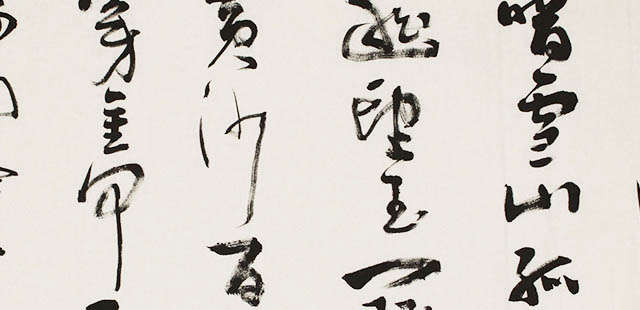 暗雪山孤
遥望玉门
黄沙百
穿金甲